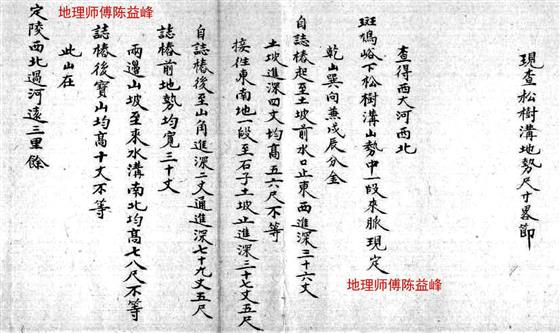 現查松樹溝地勢尺寸畧節
查得西大河西北
斑鳩峪下松樹溝山勢中一段來脈現定
乾山巽向兼戌辰分金
自誌樁起至土坡前水口止東西進深三十六丈
土坡進深四丈均高五六尺不等
接往東南地一段至石子土坡止進深三十七丈五尺
自誌樁後至山角進深二丈通進深七十九丈五尺
誌樁前地勢均寬三十丈
兩邊山坡至來水溝南北均高七八尺不等
誌樁後寶山均高十丈不等
此山在
定陵西北過河遠三里餘
地理师傅陈益峰
地理师傅陈益峰